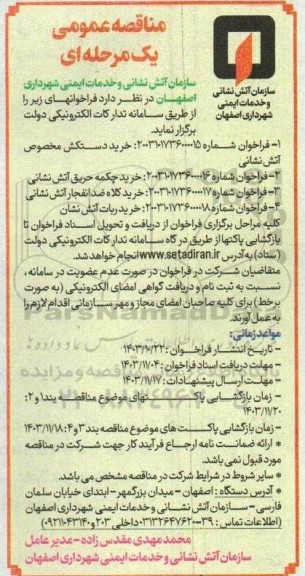 مناقصه عمومی
یک مرحله ای
سازمان آتش نشانی
و خدمات ایمنی
شهرداری اصفهان
سازمان آتش نشانی و خدمات ایمنی شهرداری
اصفهان در نظر دارد فراخوانهای زیر را
از طریق سامانه تدارکات الکترونیکی دولت
برگزار نماید.
۱- فراخوان شماره ۲۰۰۳۰۱۷۳۶۰۰۰۰۱۵: خرید دستکش مخصوص
آتش نشانی
۲- فراخوان شماره ۲۰۰۳۰۱۷۳۶۰۰۰۰۱۶: خرید چکمه حریق آتش نشانی
۳- فراخوان شماره ۲۰۰۳۰۱۷۳۶۰۰۰۰۱۷: خرید کلاه ضد انفجار آتش نشانی
۴- فراخوان شماره ۲۰۰۳۰۱۷۳۶۰۰۰۰۱۸: خرید ربات آتش نشان
کلیه مراحل برگزاری فراخوان از دریافت و تحویل اسناد فراخوان تا
بازگشایی پاکتها از طریق درگاه سامانه تدارکات الکترونیکی دولت
(ستاد) به آدرس www.setadiran.ir انجام خواهد شد.
متقاضیان شرکت در فراخوان در صورت عدم عضویت در سامانه،
نسبت به ثبت نام و دریافت گواهی امضای الکترونیکی (به صورت
برخط) برای کلیه صاحبان امضای مجاز و مهر سازمانی اقدام لازم را
به عمل آورند.
مواعد زمانی:
- تاریخ انتشار فراخوان: ۱۴۰۳/۱۰/۲۲
- مهلت دریافت اسناد فراخوان: ۱۴۰۳/۱۱/۰۴
- مهلت ارسال پیشنهادات: ۱۴۰۳/۱۱/۱۷
- زمان بازگشایی پاکت های موضوع مناقصه بند ۱ و ۲:
۱۴۰۳/۱۱/۲۰
- زمان بازگشایی پاکت های موضوع مناقصه بند ۳ و ۴: ۱۴۰۳/۱۱/۱۸
* ارائه ضمانت نامه ارجاع فرآیند کار جهت شرکت در مناقصه
مورد قبول نمی باشد.
* سایر شروط در شرایط شرکت در مناقصه مشخص می باشد.
* آدرس دستگاه: اصفهان - میدان بزرگمهر - ابتدای خیابان سلمان
فارسی - سازمان آتش نشانی و خدمات ایمنی شهرداری اصفهان
محمد مهدی مقدس زاده - مدیر عامل
سازمان آتش نشانی و خدمات ایمنی شهرداری اصفهان